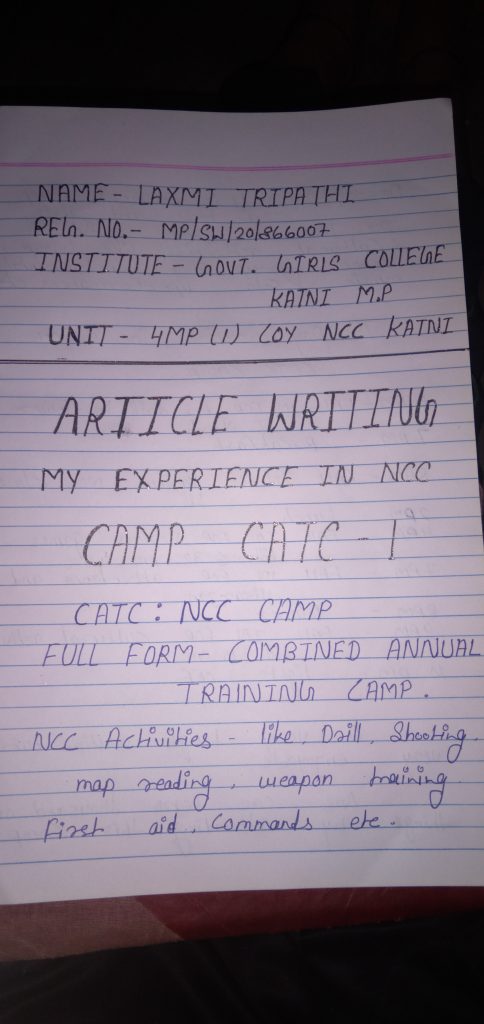 NAME - LAXMI TRIPATHI
REG. NO. - MP/SW/20/866007
INSTITUTE - GOVT. GIRLS COLLEGE
KATNI M.P
UNIT - 4MP (1) COY NCC KATNI
ARTICLE WRITING
MY EXPERIENCE IN NCC
CAMP CATC - 1
CATC : NCC CAMP
FULL FORM - COMBINED ANNUAL
TRAINING CAMP.
NCC Activities - like, Drill, Shooting,
map reading, weapon training
first aid, Commands etc.